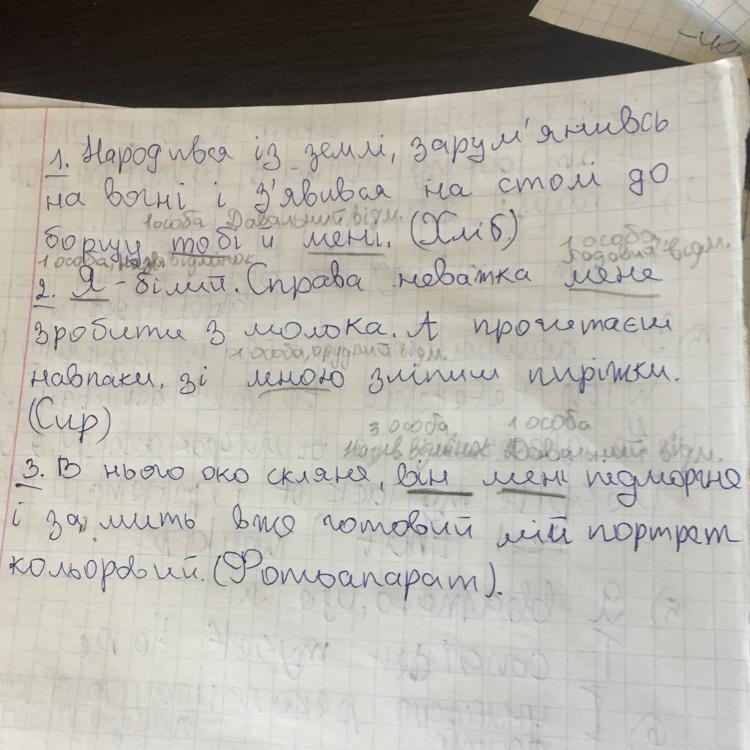 1. Народився із землі, зарум'янивсь
на вогні і з'явився на столі до
1 особа Давальний відм.
борщу тобі й мені. (Хліб)
1 особа,
Родовий відм.
1 особа, назив відмінок
2. Я - білий. Справа неважка мене
зробити з молока. А прочитаєш
1 особа, орудний відм.
навпаки, зі мною зліпиш пиріжки.
(Сир)
3 особа, 1 особа
Назив відмінок Давальний відм.
3. В нього око скляне, він мені підморгне
і за мить вже готовий мій портрет
кольоровий. (Фотоапарат).